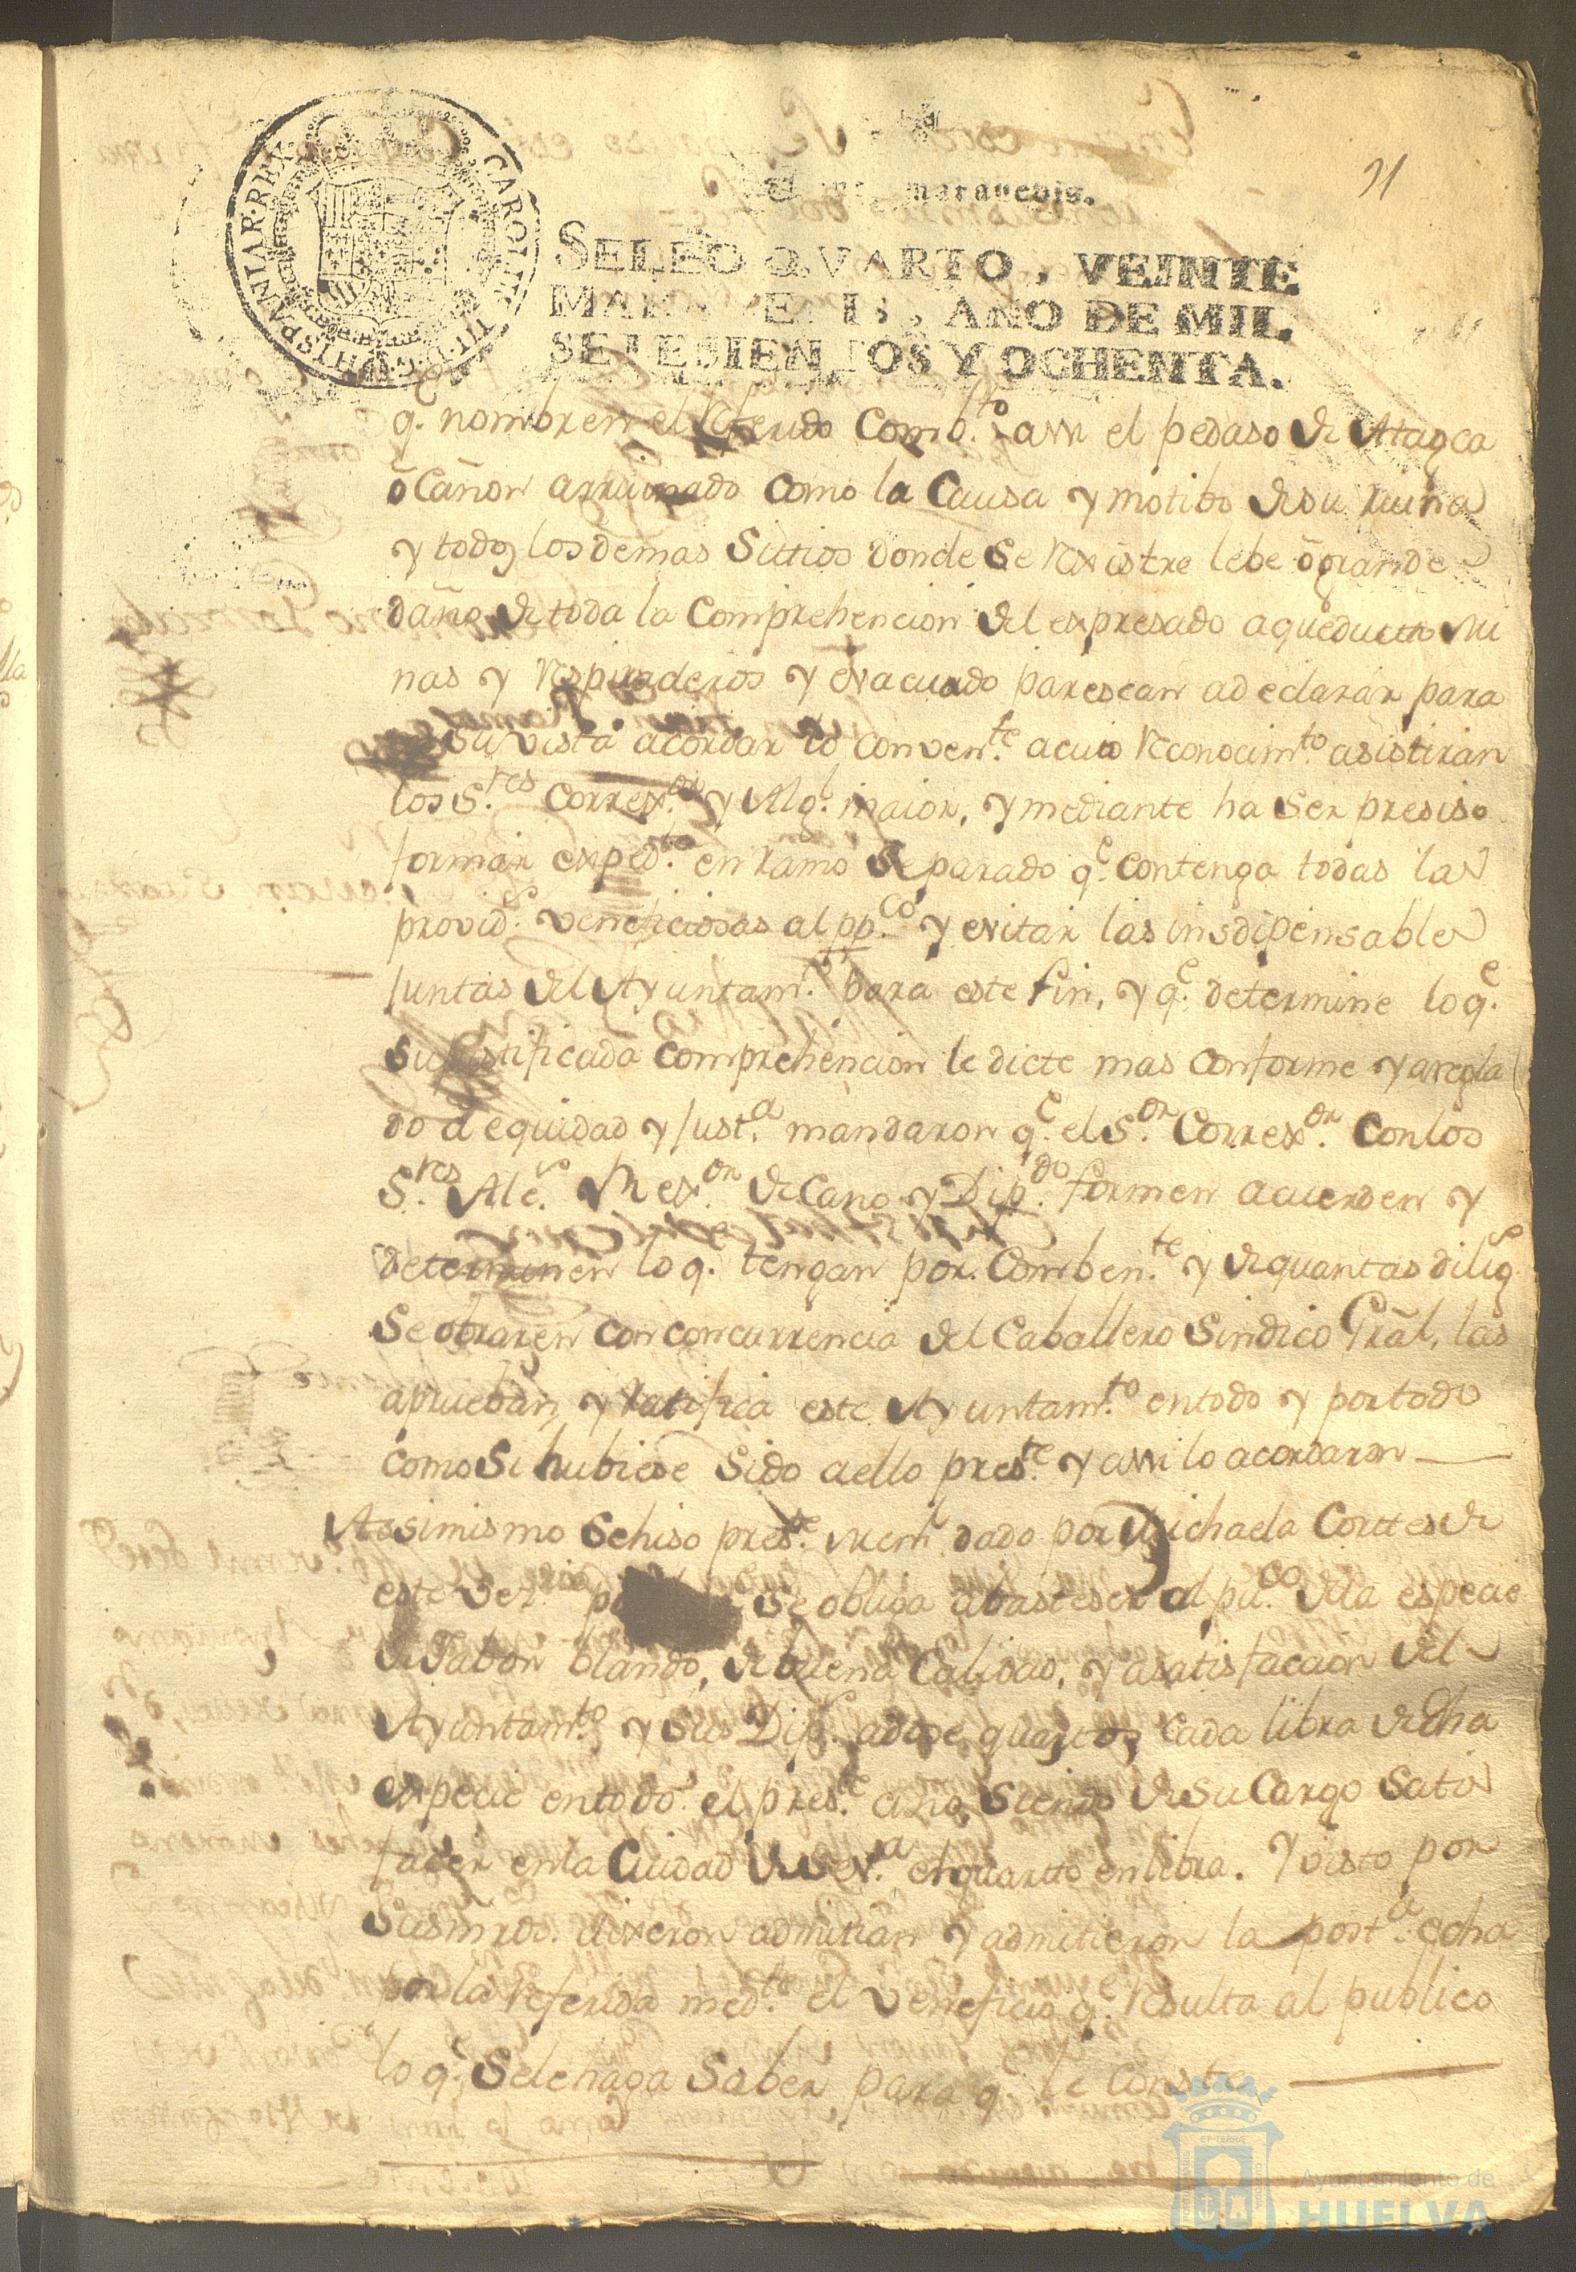 21
CAROLVS III D G HISPANIAR REX
maravedis.
SELLO QVARTO, VEINTE
MARAVEDIS, AÑO DE MIL
SETESIENTOS Y OCHENTA.
q. nombren el referido Comb.to assi el pedaso de Atagea
ō Cañon arruinado como la Causa y motibo de su ruina
y todos los demas Sittios donde Se rexistre lebe ō grande
daño de toda la Comprehencion del expresado aqueducto Mi
nas y respiraderos y evacuado parescan a declarar para
su vista acordar lo conven.te a cuio reconocim.to asistiran
los S.res Correx.or y Alg.l maior, y mediante ha ser presiso
formar exped.te en ramo Separado q.e contenga todas las
provid.s veneficiosas al pp.co y evitar las insdipensables
Juntas del Ayuntam.to para este fin, y q.e determine lo q.e
su Justificada comprehencion le dicte mas conforme y aregla
do a equidad y Just.a mandaron q.e el S.or Correx.or Con los
S.res Alc.s Rex.or de Cano y Dip.do formen acuerden y
determinen lo q. tengan por Comben.te y de quantas dilig.s
Se obraren con concurrencia del Caballero Sindico Gral, las
aprueban y ratifica este Ayuntam.to en todo y por todo
como Si hubiese Sido a ello pres.te y assi lo acordaron
Assimismo Se hiso pres.te mem.l dado por Michaela Corttes de
este vez.rio se obliga abasteser al pu.co de la especie
de Jabon blando, de buena Calidad, y a satisfacion del
Ayuntam.to y sus Dip.s a dose quartos cada libra de dha
expecie en todo el pres.te año, Siendo de Su Cargo Satis
facer en la Ciudad de Sev.a el quartto en libra. Y visto por
Sus mrds. dixeron admitian y admitieron la post.a echa
por la referida med.te el veneficio q.e resulta al publico
lo q.e Se le haga Saber para q.e le Conste
Ayuntamiento de
HUELVA